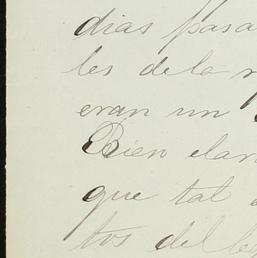 dias pasa
les de la
eran un
Bien clar
que tal
tos del